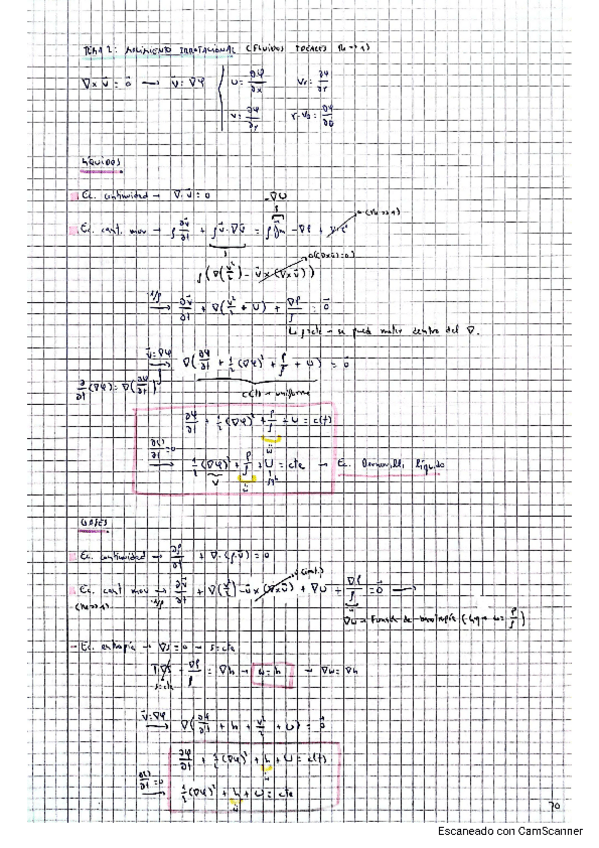 TEMA 2: MOVIMIENTO IRROTACIONAL (FLUIDOS IDEALES Re→∞)
∇×v⃗ = 0⃗ → v⃗ = ∇φ
u = ∂φ/∂x
v = ∂φ/∂y
Vr = ∂φ/∂r
r·Vθ = ∂φ/∂θ
LÍQUIDOS
Ec. continuidad → ∇·v⃗ = 0
-∇U
Ec. cant. mov →
ρ(∇(v²/2) - v⃗×(∇×v⃗))
→ ∂v⃗/∂t + ∇(v²/2 + U) + ∇P/ρ = 0⃗
ρ cte → se puede meter dentro del ∇.
v⃗=∇φ → ∇(∂φ/∂t + 1/2(∇φ)² + P/ρ + U) = 0⃗
∂/∂t(∇φ) = ∇(∂φ/∂t)
c(t) → uniforme
∂φ/∂t + 1/2(∇φ)² + P/ρ + U = c(t)
∂()/∂t=0 → 1/2(∇φ)² + P/ρ + U = cte → Ec. Bernoulli líquido
GASES
Ec. continuidad → ∂ρ/∂t + ∇·(ρv⃗) = 0
Ec. cant mov → ∂v⃗/∂t + ∇(v²/2) - v⃗×(∇×v⃗) + ∇U + ∇P/ρ = 0⃗ →
(Re→∞)
∇w → Función de barotropía (liq → w = P/ρ)
- Ec. entropía → ∇s = 0 → s = cte
T∇s + ∇P/ρ = ∇h → w = h → ∇w = ∇h
s=cte
v⃗=∇φ → ∇(∂φ/∂t + h + v²/2 + U) = 0⃗
∂φ/∂t + 1/2(∇φ)² + h + U = c(t)
∂()/∂t=0 → 1/2(∇φ)² + h + U = cte
70
Escaneado con CamScanner